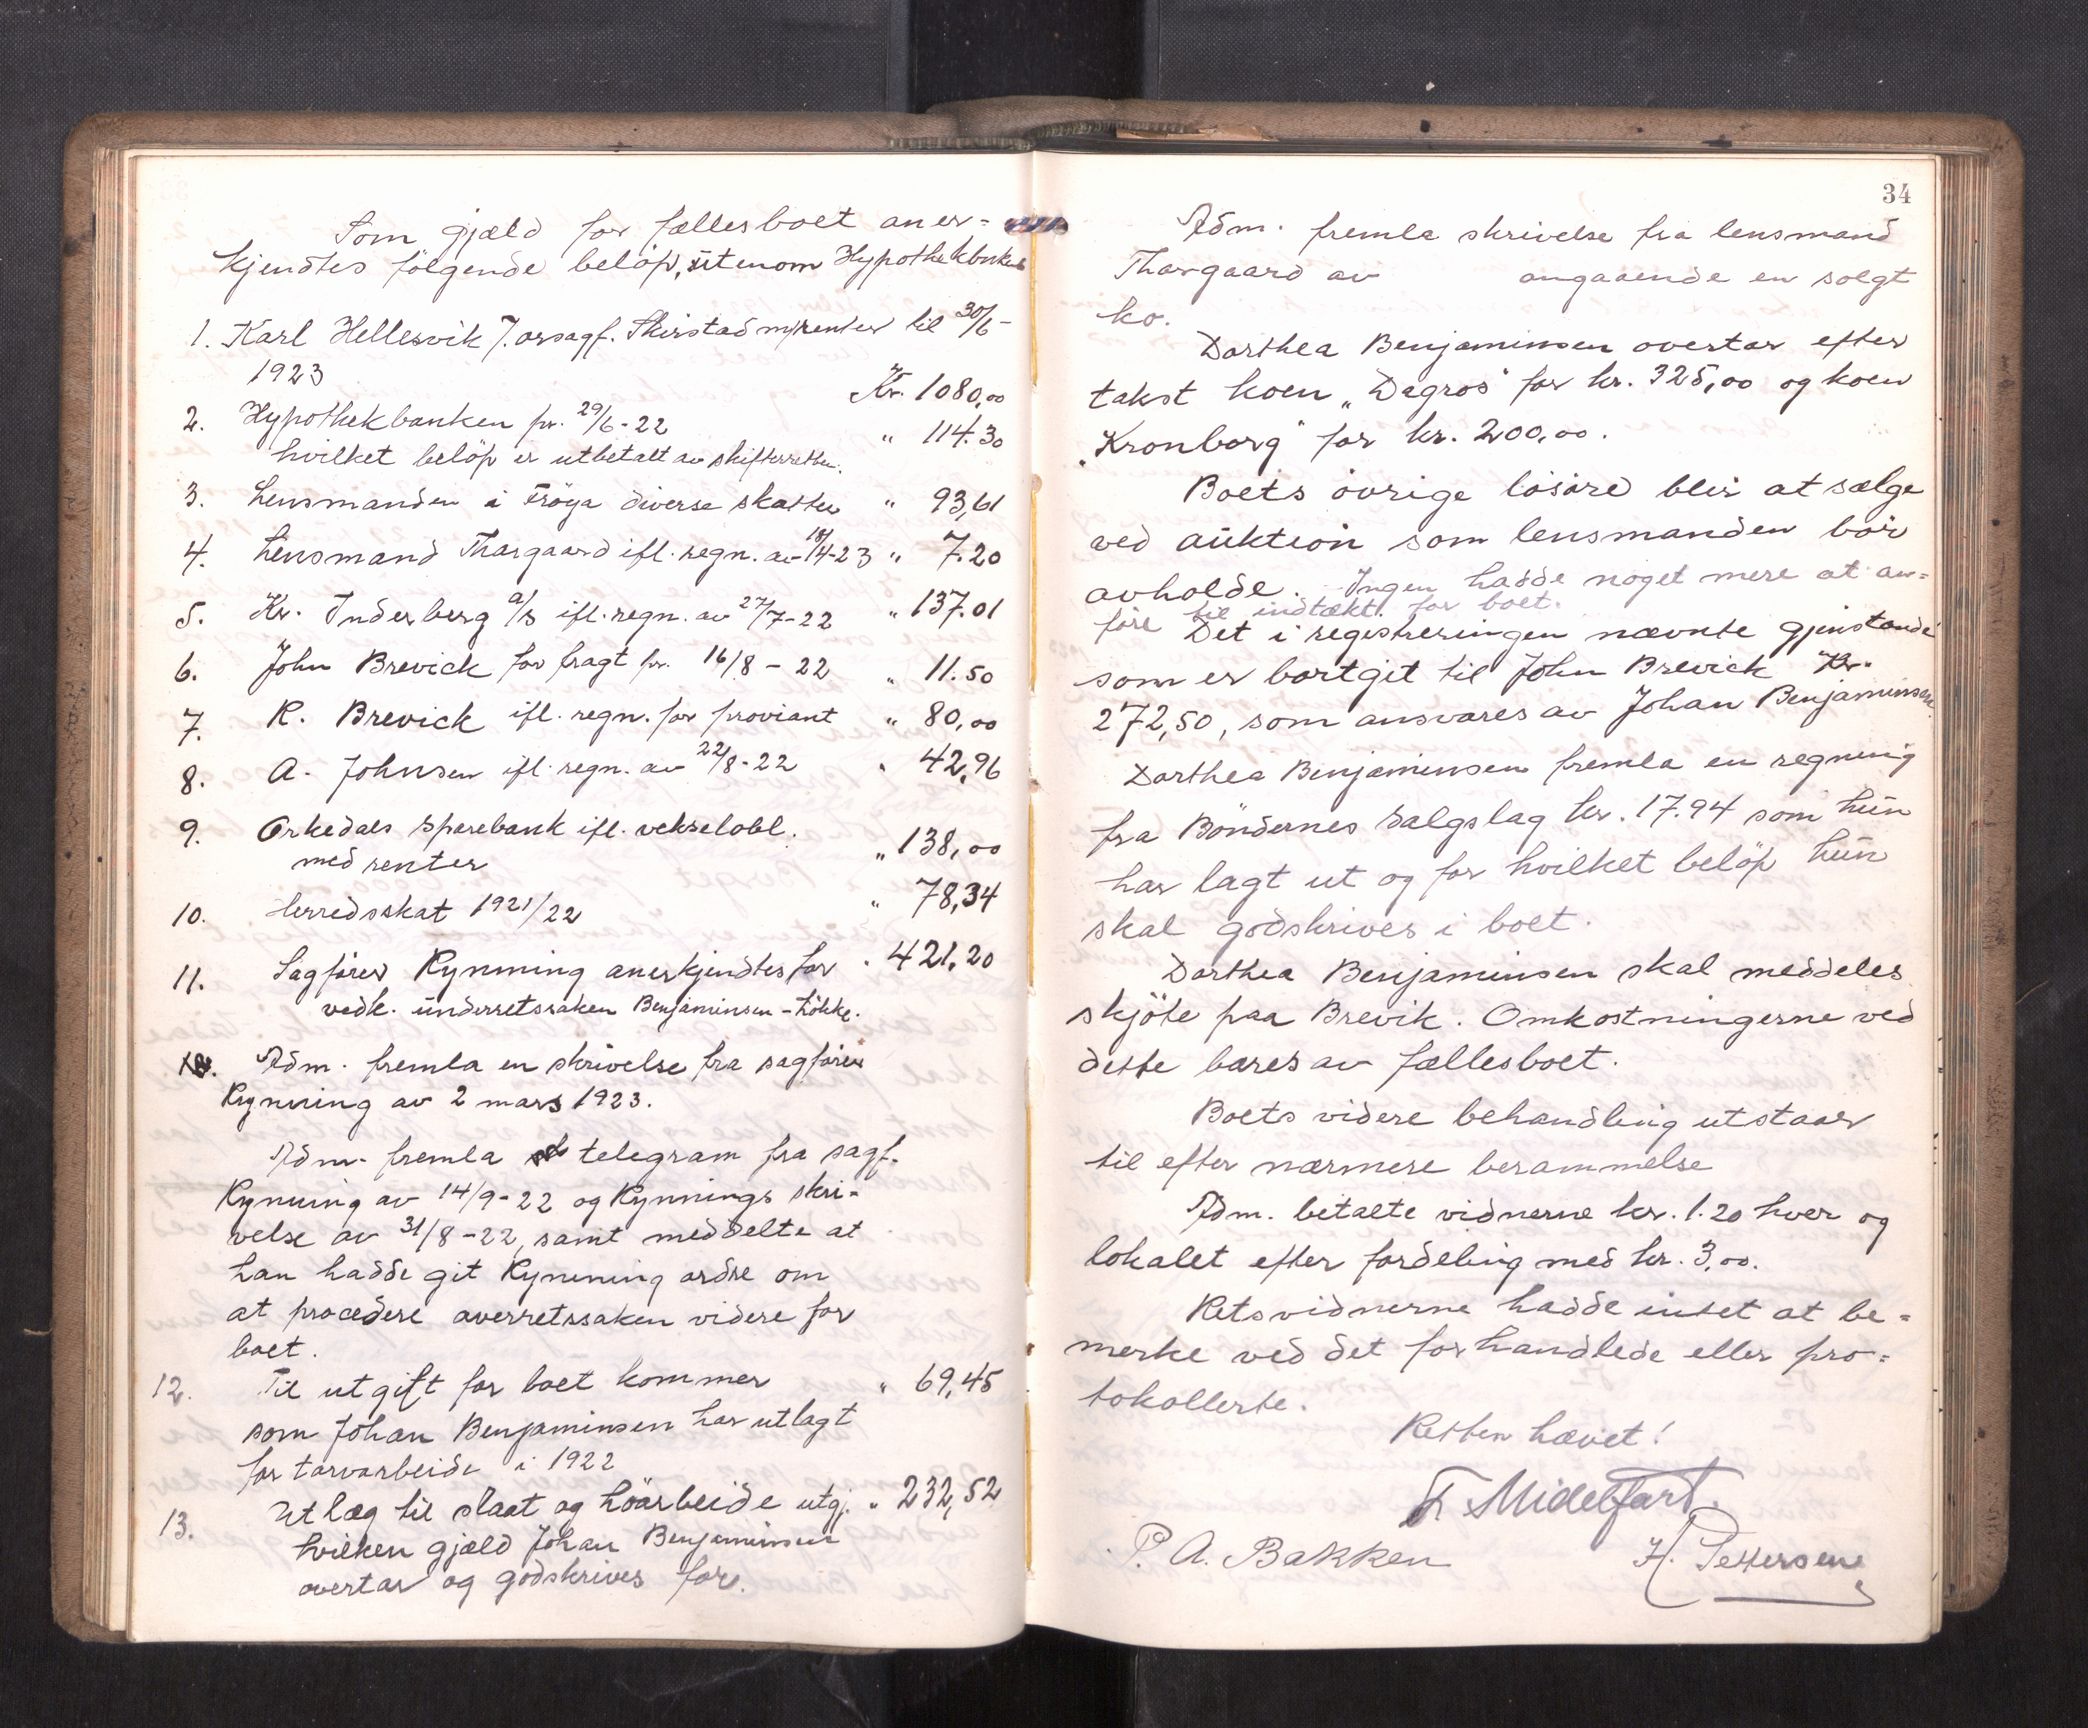 Som gjæld for fællesboet aner-
kjendtes følgende beløp, utenom Hypothekbanken
1. Karl Hellesvik f. orsagf. Skirstad m/renter til 30/6-
1923 Kr. 1080,00
2. Hypothekbanken pr. 29/6-22 " 114.30
hvilket beløp er utbetalt av skifteretten.
3. Lensmanden i Frøya diverse skatter " 93,61
4. Lensmand Thorgaard ifl. regn. av 18/4-23 " 7.20
5. Kr. Inderberg a/s ifl. regn. av 27/7-22 " 137.01
6. John Brevick for fragt pr. 16/8-22 " 11.50
7. K. Brevick ifl. regn. for proviant " 80,00
8. A. Johnsen ifl. regn. av 22/8-22 " 42,96
9. Orkedals Sparebank ifl. vekselobl.
med renter " 138,00
10. Herredsskat 1921/22 " 78,34
11. Sagfører Rynning anerkjendtes for " 421,20
vedk. underretssaken Benjaminsen - Løkke.
Adm. fremla en skrivelse fra sagfører
Rynning av 2 mars 1923.
Adm. fremla telegram fra sagf.
Rynning av 14/9-22 og Rynnings skri-
velse av 31/8-22, samt meddelte at
han hadde git Rynning ordre om
at procedere overretssaken videre for
boet.
12. Til utgift for boet kommer " 69,45
som Johan Benjaminsen har utlagt
for torvarbeide i 1922
13. Utlæg til slaat og höarbeide utgj. " 232,52
hvilken gjæld Johan Benjaminsen
overtar og godskrives for.
34
Adm. fremla skrivelse fra lensmand
Thorgaard av angaaende en solgt
ko.
Dorthea Benjaminsen overtar efter
takst koen „Dagros" for kr. 325,00 og koen
„Kronborg" for kr. 200,00.
Boets övrige lösöre blir at sælge
ved auktion som lensmanden bör
avholde. Ingen hadde noget mere at an-
före til indtækt for boet.
Det i registreringen nævnte gjenstande
som er bortgit til John Brevick Kr.
272,50, som ansvares av Johan Benjaminsen.
Dorthea Benjaminsen fremla en regning
fra Böndernes Salgslag kr. 17.94 som hun
har lagt ut og for hvilket belöp hun
skal godskrives i boet.
Dorthea Benjaminsen skal meddeles
skjöte paa Brevik. Omkostningerne ved
dette bæres av fællesboet.
Boets videre behandling utstaar
til efter nærmere berammelse
Adm. betalte vidnerne kr. 1.20 hver og
lokalet efter fordeling med kr. 3,00.
Retsvidnerne hadde intet at be-
merke ved det forhandlede eller pro-
tokollerte.
Retten hævet!
Fr. Midelfart.
P. A. Bakken H. Pettersen